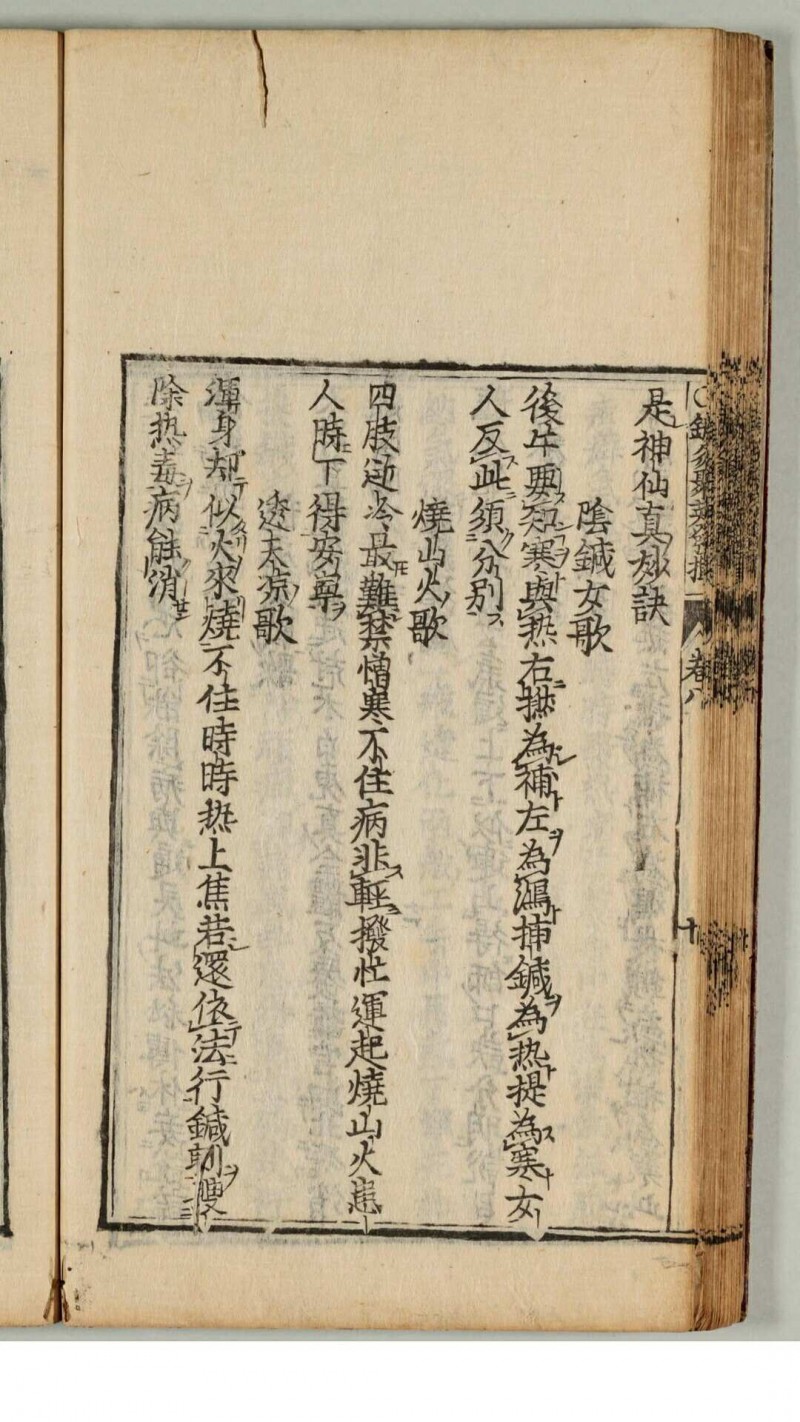 是神仙真妙訣
陰鍼女歌
後午要知寒與热右撚為補左為瀉挿鍼為热提為寒女
人反此須分別
燒山火歌
四肢逆冷最難禁憎寒不住病非輕撥忙運起燒山火患
人時下得安寧
透天凉歌
渾身却似火來燒不住時時热上焦若還依法行鍼刺搜
除热毒病能消
卷八
十